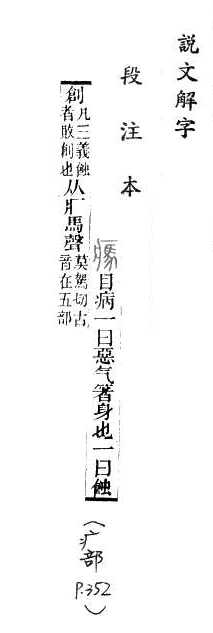 說文解字
段注本
目病一曰惡气箸身也一曰蝕
創凡三義蝕者敗創也从疒馬聲莫駕切古音在五部
(疒部 P.352)